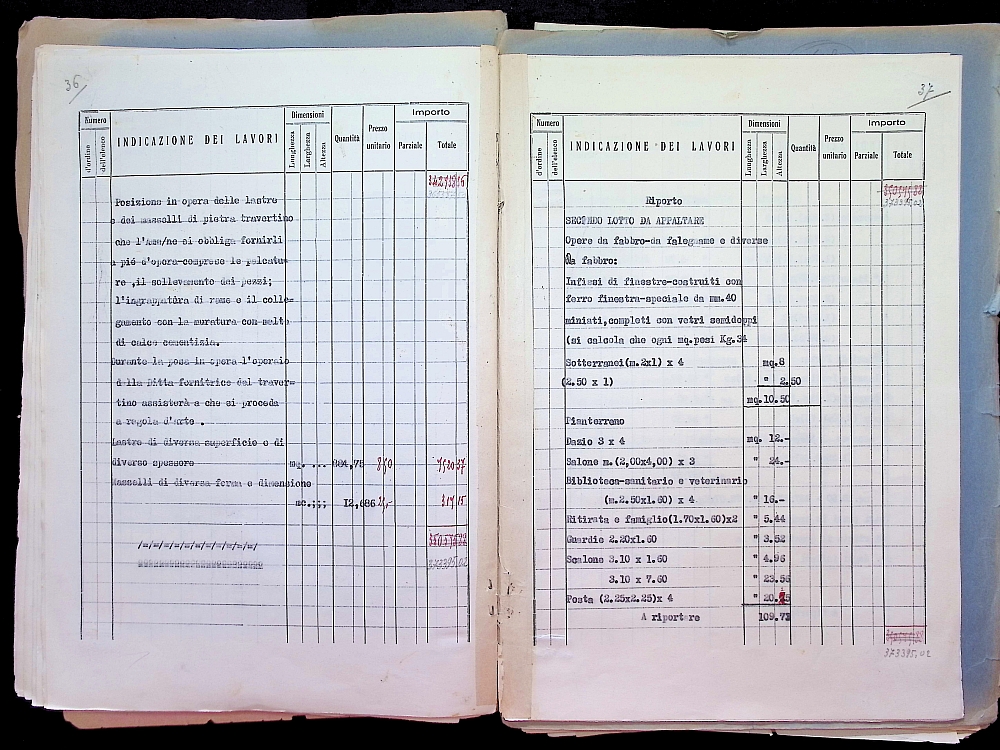 36
Numero
d'ordine
dell'elenco
INDICAZIONE DEI LAVORI
Dimensioni
Lunghezza
Larghezza
Altezza
Quantità
Prezzo
unitario
Importo
Parziale
Totale
Posizione in opera delle lastre
e dei masselli di pietra travertino
che l'Amm/ne si obbliga fornirli
a pié d'opera-comprese le palcatu=
re ,il sollevamento dei pezzi;
l'ingrappatùra di rame e il colle=
gamento con la muratura con malta
di calce cementizia.
Durante la posa in opera l'operaio
della Ditta fornitrice del traver=
tino assisterà a che si proceda
a regola d'arte .
Lastre di diversa superficie e di
diverso spessore mq. ... 884,75 8,50 7520 37
Masselli di diversa forma e dimensione
mc.;;; 12,686 317 15
/=/=/=/=/=/=/=/=/=/=/=/
373395,02
37
Numero
d'ordine
dell'elenco
INDICAZIONE DEI LAVORI
Dimensioni
Lunghezza
Larghezza
Altezza
Quantità
Prezzo
unitario
Importo
Parziale
Totale
373395,02
Riporto
SECONDO LOTTO DA APPALTARE
Opere da fabbro-da falegname e diverse
Da fabbro:
Infissi di finestre-costruiti con
ferro finestra-speciale da mm.40
miniati,completi con vetri semidoppi
(si calcola che ogni mq.pesi Kg.34
Sotterranei(m.2x1) x 4 mq.8
(2.50 x 1) " 2.50
mq.10.50
Pianterreno
Dazio 3 x 4 mq. 12.-
Salone m.(2,00x4,00) x 3 " 24.-
Biblioteca-sanitario e veterinario
(m.2.50x1.60) x 4 " 16.-
Ritirata e famiglio(1.70x1.60)x2 " 5.44
Guardie 2.20x1.60 " 3.52
Scalone 3.10 x 1.60 " 4.96
3.10 x 7.60 " 23.56
Posta (2.25x2.25)x 4 " 20.25
A riportare 109.73
373395,02